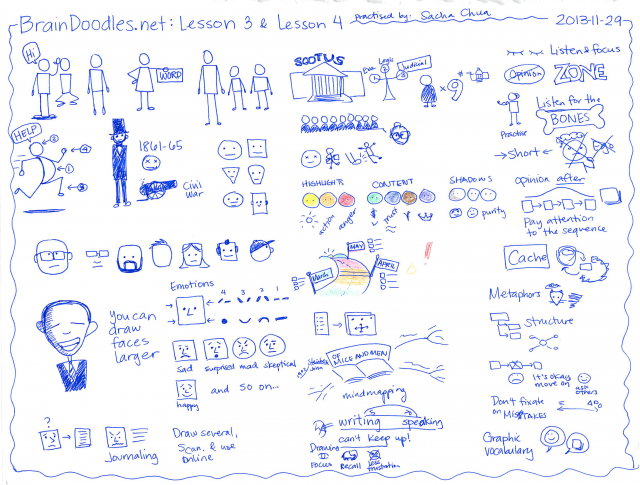 BrainDoodles.net: Lesson 3 & Lesson 4
Practised by: Sacha Chua
2013-11-29
Hi
WORD
HELP
3
4
1
3
1861-65
Civil
War
Emotions
4 3 2 1
You can
draw
faces
larger
sad surprised mad skeptical
happy
and so on...
?
Journaling
Draw several,
scan, & use
online
SCOTUS
Logic
Judicial
1
2
3
x 9
HIGHLIGHT
CONTENT
SHADOWS
action
anger
$
purity
March
MAY
APRIL
OF
MICE AND MEN
mindmapping
writing speaking
can't keep up!
Drawing
FOCUS RECALL less
frustration
Listen & focus
Opinion
ZONE
Listen for the
BONES
Practise
→ Short ←
Ego
Opinion after
Pay attention
to the sequence
Cache
Metaphors
Structure
It's okay,
move on
ask
others
Don't fixate
on MISTAKES
4%
Graphic
vocabulary